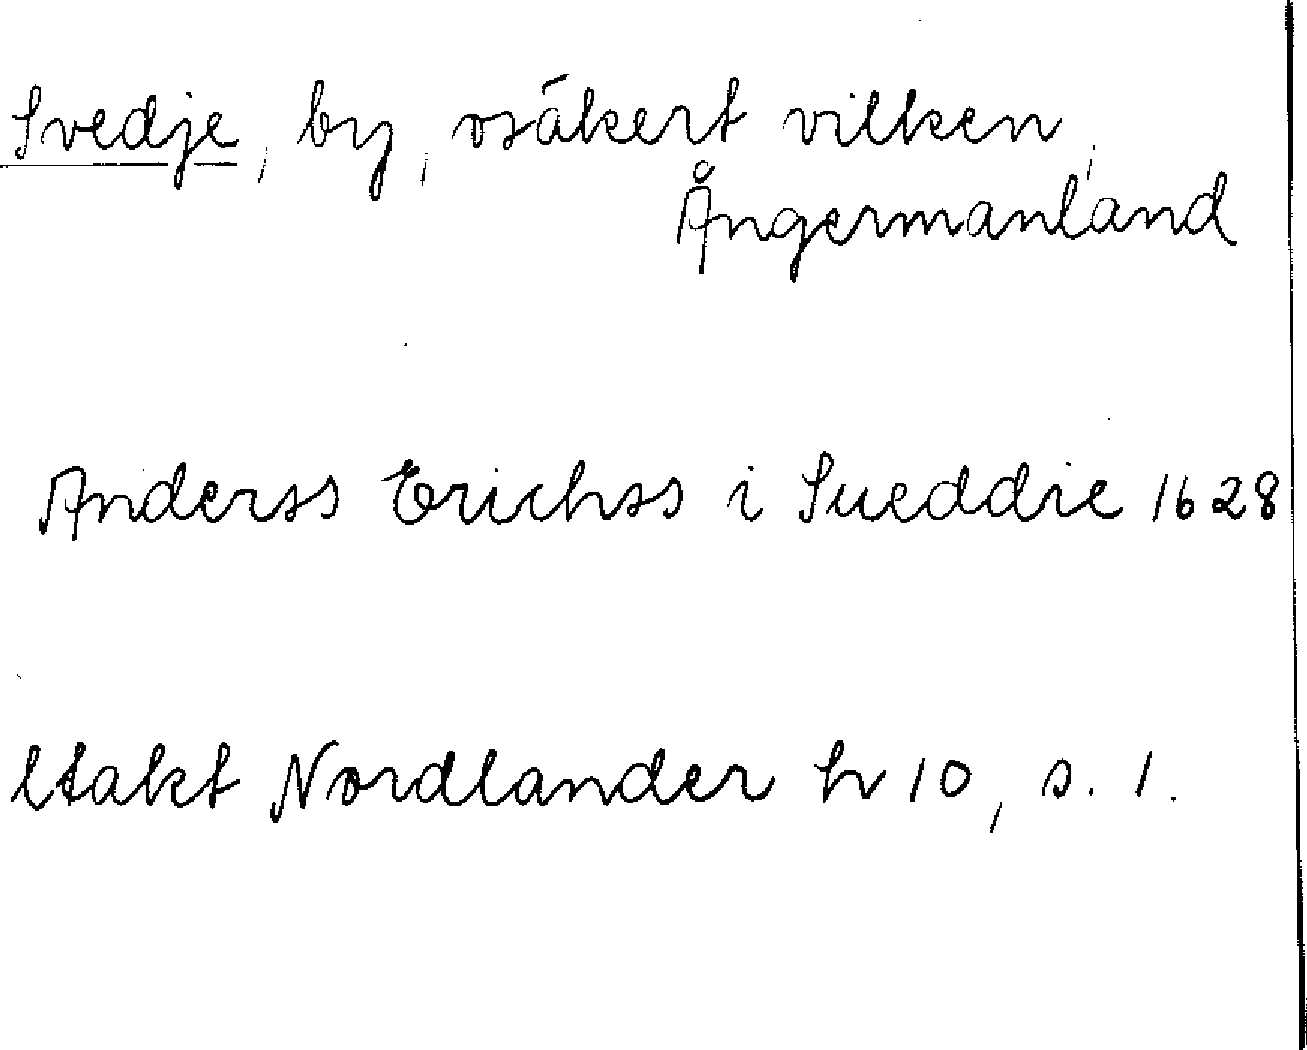 Svedje, by, osäkert vilken,
Ångermanland
Anderss Erichss i Sueddie 1628
Utakt Nordlander h 10, s. 1.